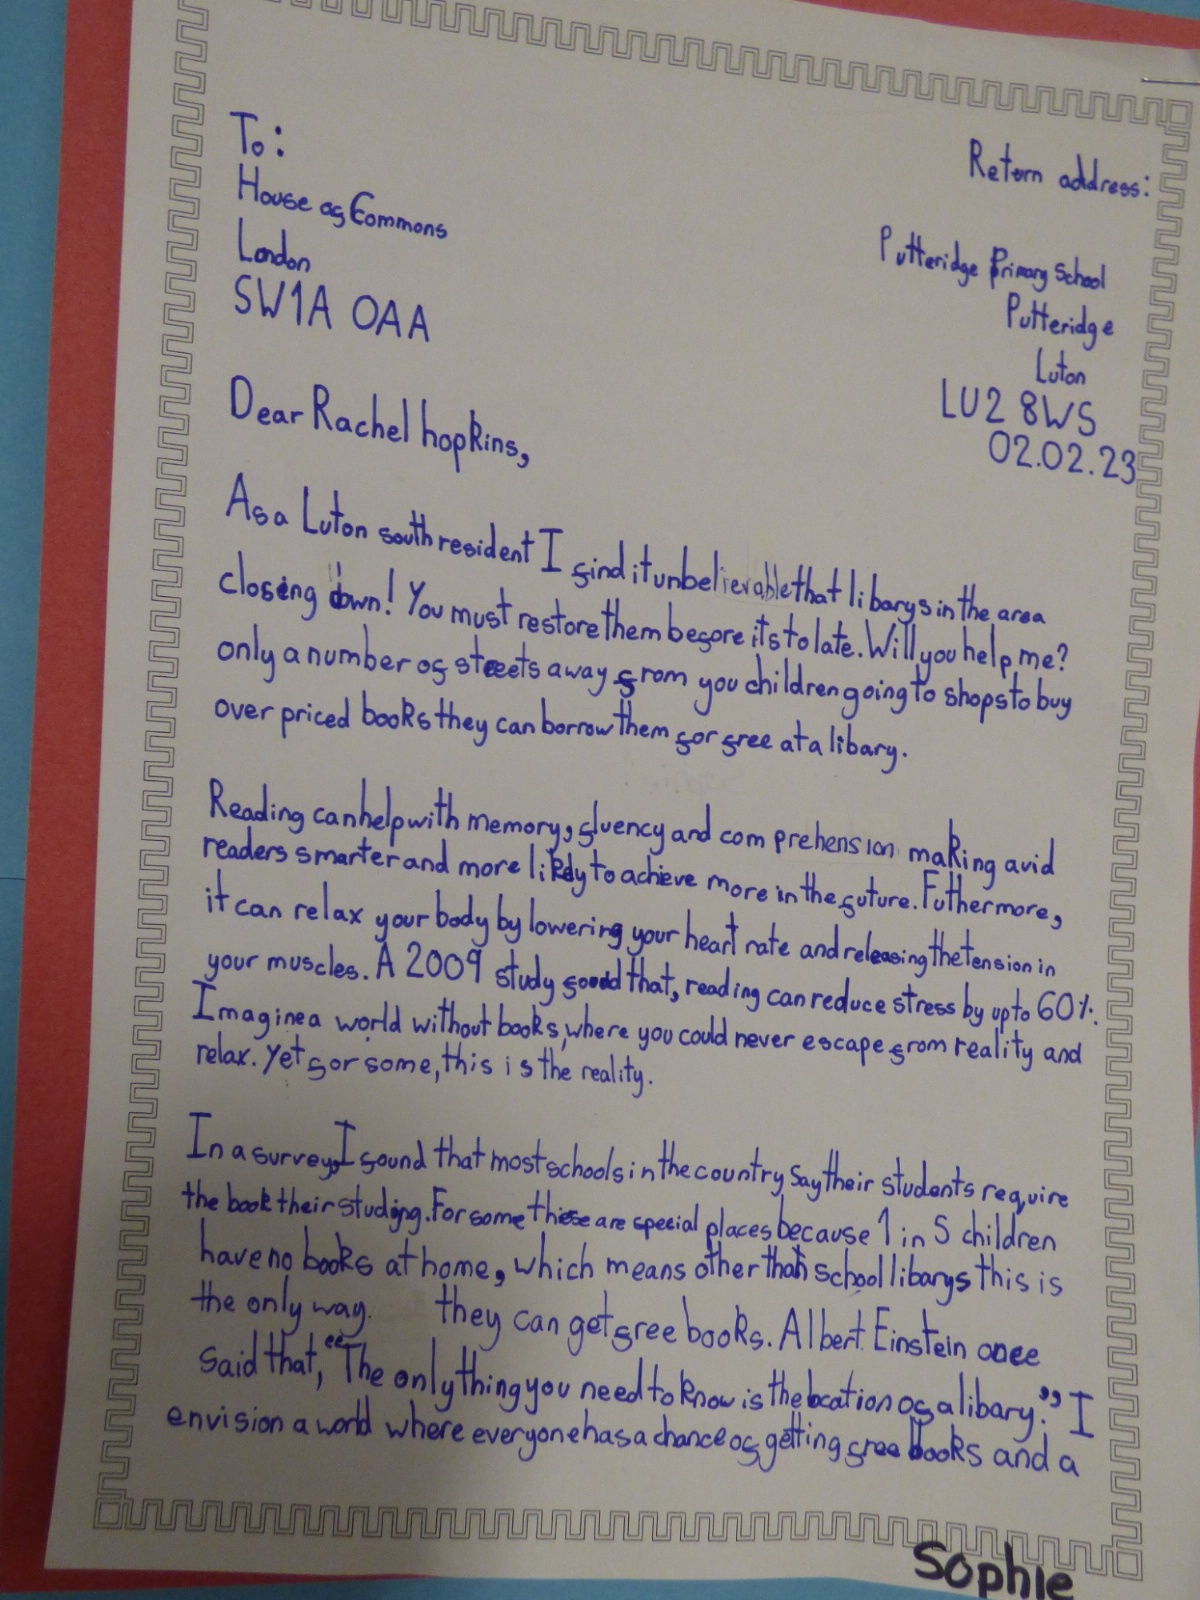 To:
House of Commons
London
SW1A OAA
Return address:
Putteridge Primary School
Putteridge
Luton
LU2 8WS
02.02.23
Dear Rachel hopkins,
As a Luton south resident I find it unbelievable that libarys in the area
closing down! You must restore them before its to late. Will you help me?
only a number of streets away from you children going to shops to buy
over priced books they can borrow them for free at a libary.
Reading can help with memory, fluency and comprehension making avid
readers smarter and more likely to achieve more in the future. Futhermore,
it can relax your body by lowering your heart rate and releasing the tension in
your muscles. A 2009 study found that, reading can reduce stress by up to 60%.
Imagine a world without books, where you could never escape from reality and
relax. Yet for some, this is the reality.
In a survey, I found that most schools in the country say their students require
the book their studing. For some these are special places because 1 in 5 children
have no books at home, which means other than school libarys this is
the only way. they can get free books. Albert Einstein once
said that, "The only thing you need to know is the location of a libary." I
envision a world where everyone has a chance of getting free books and a
Sophie